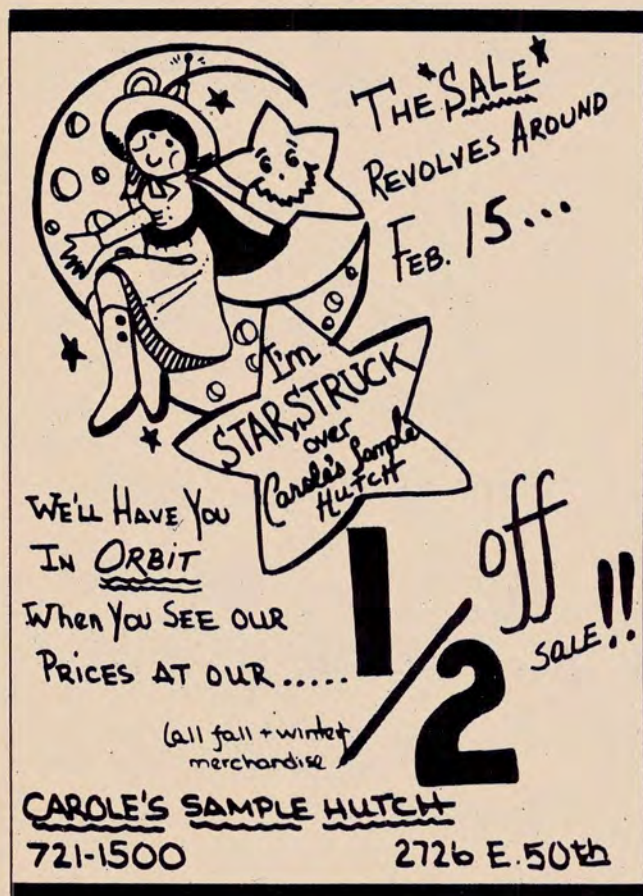 THE *SALE*
REVOLVES AROUND
FEB. 15...
I'm
STAR STRUCK
over
Carole's Sample
HUTCH
WE'LL HAVE YOU
IN ORBIT
When You SEE OUR
PRICES AT OUR.....
1/2 off
SALE!!
(all fall + winter
merchandise
CAROLE'S SAMPLE HUTCH
721-1500 2726 E. 50th